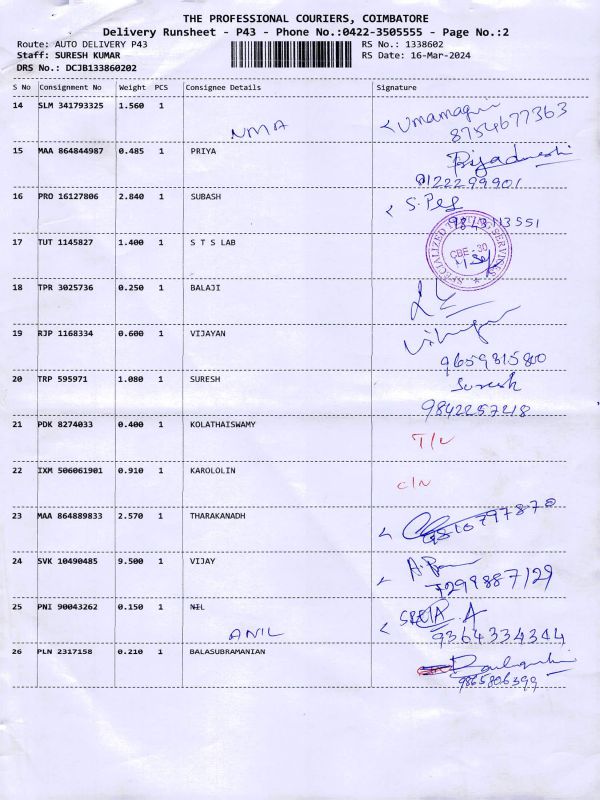 THE PROFESSIONAL COURIERS, COIMBATORE
Delivery Runsheet - P43 - Phone No.:0422-3505555 - Page No.:2
Route: AUTO DELIVERY P43 RS No.: 1338602
Staff: SURESH KUMAR RS Date: 16-Mar-2024
DRS No.: DCJB133860202
S No Consignment No Weight PCS Consignee Details Signature
14 SLM 341793325 1.560 1
UMA
8754677363
15 MAA 864844987 0.485 1 PRIYA
0122299901
16 PRO 16127806 2.840 1 SUBASH
9843113551
17 TUT 1145827 1.400 1 S T S LAB
SPECIALIZED TESTING SERVICES
CBE - 30
18 TPR 3025736 0.250 1 BALAJI
19 RJP 1168334 0.600 1 VIJAYAN
9659815800
20 TRP 595971 1.080 1 SURESH Suresh
9842257218
21 PDK 8274033 0.400 1 KOLATHAISWAMY
T/L
22 IXM 506061901 0.910 1 KAROLOLIN
C/N
23 MAA 864889833 2.570 1 THARAKANADH
9810797870
24 SVK 10490485 9.500 1 VIJAY
7299887129
25 PNI 90043262 0.150 1 NIL
ANIL
9364334344
26 PLN 2317158 0.210 1 BALASUBRAMANIAN
9865806399